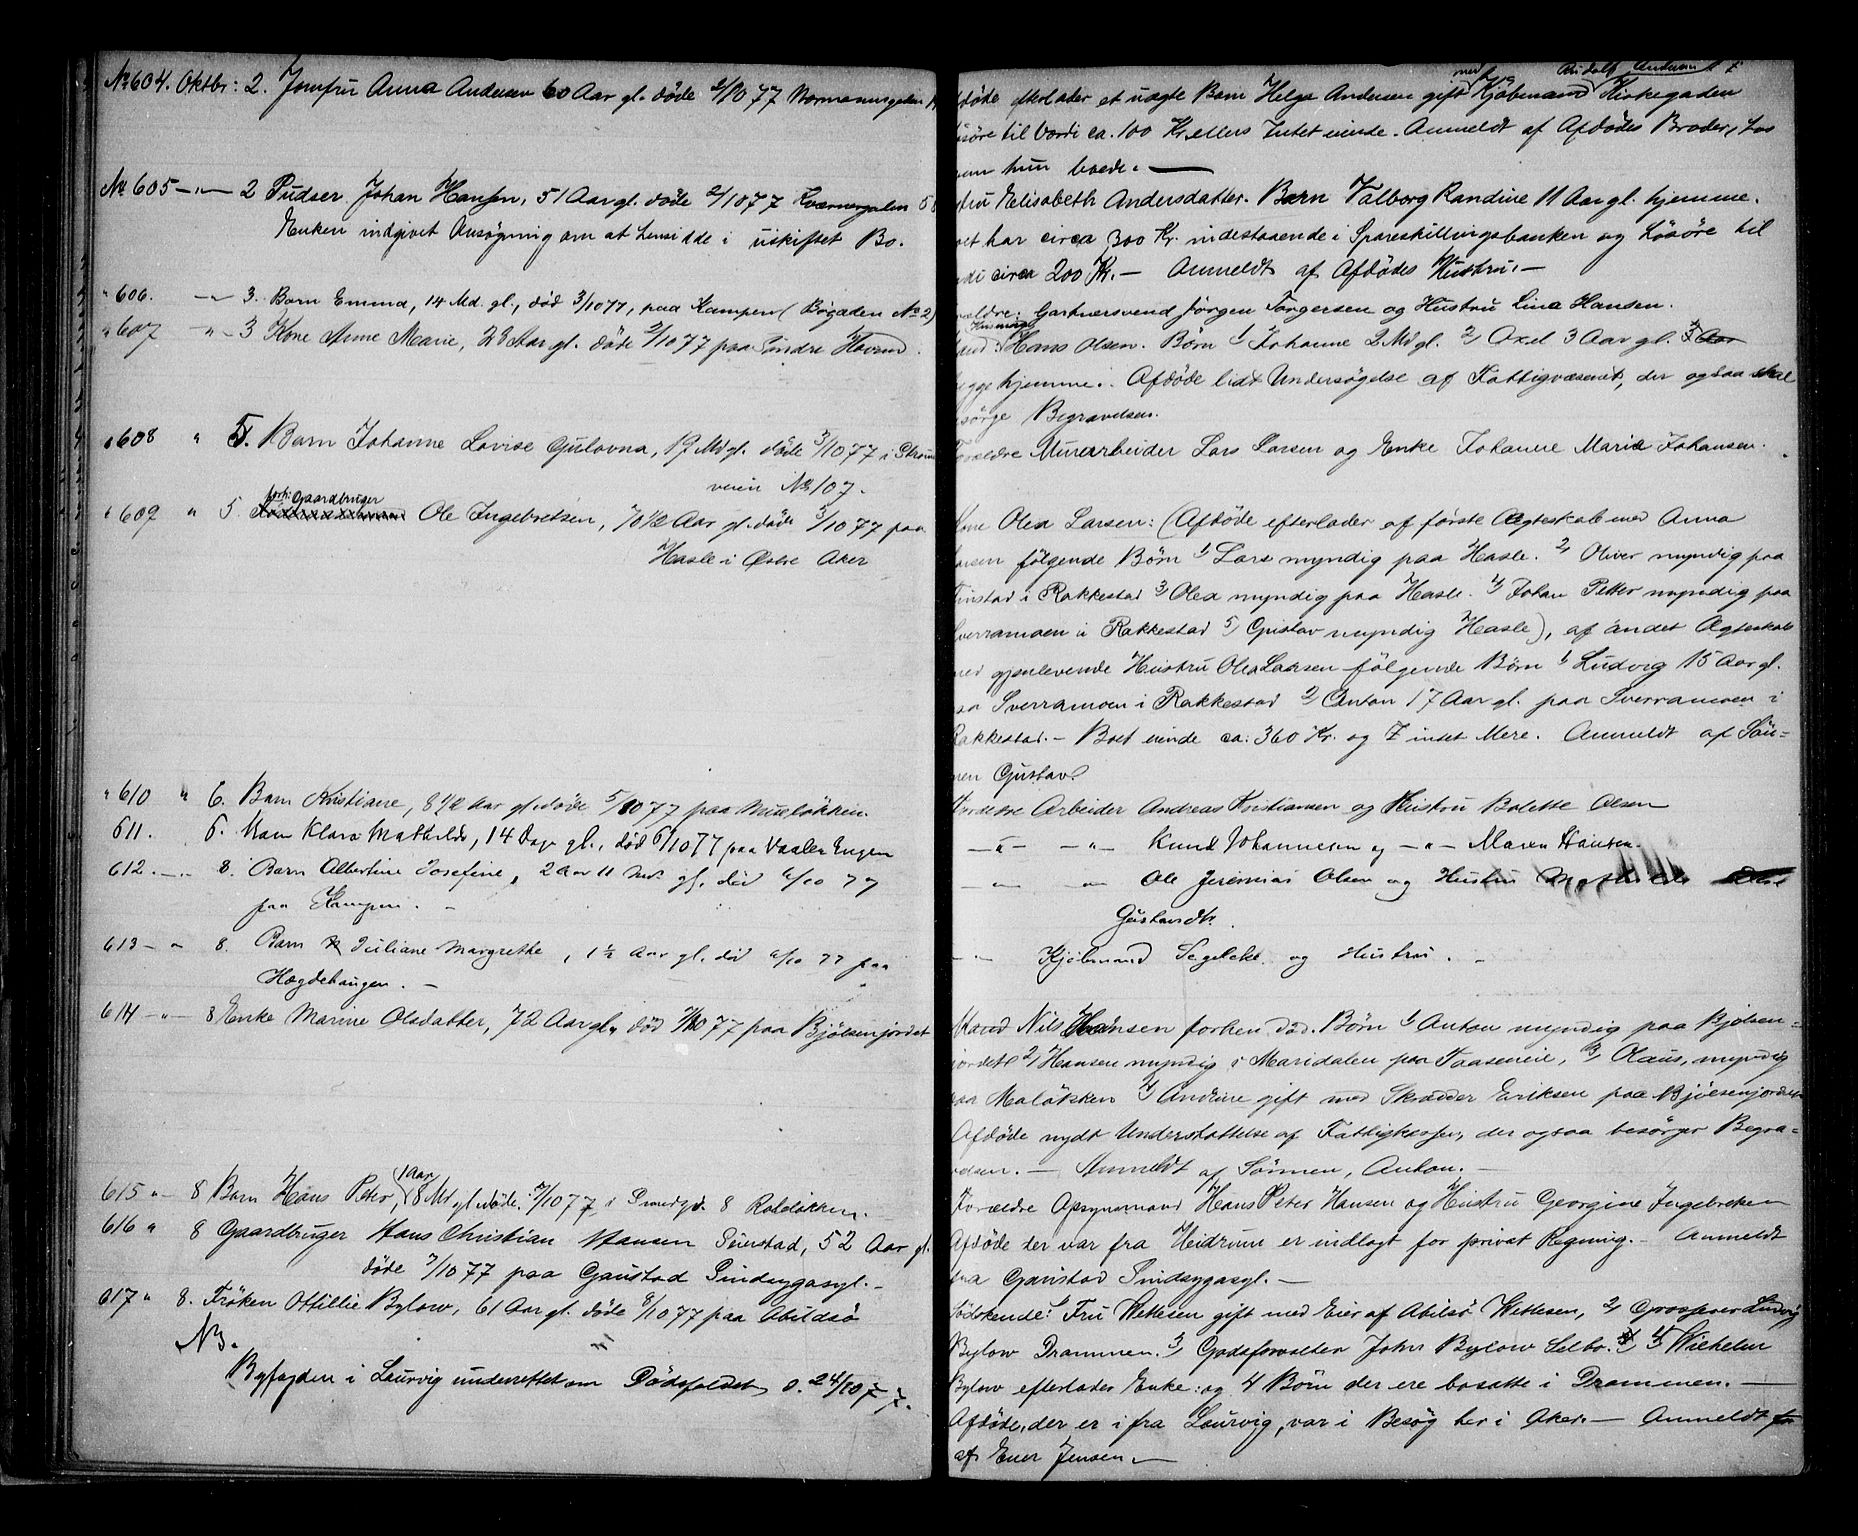 No 604. Oktbr: 2. Jomfru Anna Andersen 60 Aar gl. døde 2/10 77 Normannsgaden
No 605 —"— 2 Pudser Johan Hansen, 51 Aar gl. døde 2/10 77 Kværnergaden 5
Enken indgivet Ansøgning om at hensidde i uskiftet Bo.
" 606. —"— 3. Barn Emma, 14 Md. gl., død 3/10 77, paa Kampen (Bøgaden No 2)
" 607 "— 3 Kone Anne Marie, 28 Aar gl. døde 2/10 77 paa Søndre Hovind.
" 608 " 5. Barn Johanne Lovise Gulovna, 19 Md gl. døde 3/10 77 i Strøms
veien No 107.
forh: Gaardbruger
" 609 " 5. Ole Ingebretsen, 70 1/2 Aar gl. døde 3/10 77 paa
Hasle i Østre Aker
" 610 " 6. Barn Kristiane, 8 1/2 Aar gl. døde 5/10 77 paa Munkløkken.
611. 6. Barn Klara Mathilde, 14 Dage gl., død 6/10 77 paa Vaaler Engen
612 —"— 8. Barn Albertine Josefine, 2 Aar 11 Md gl. død 6/10 77
paa Kampen. —
613 — " 8. Barn Juliane Margrethe, 1 1/2 Aar gl. død 6/10 77 paa
Hægdehaugen. —
614 —"— 8 Enke Marine Olsdatter, 72 Aar gl., død 7/10 77 paa Bjølsenjordet
1 Aar
615 "— 8 Barn Hans Peter, 8 Md gl. døde 7/10 77 i Smedgd. 8 Rodeløkken.
616 " 8 Gaardbruger Hans Christian Hansen Seierstad, 52 Aar gl.
døde 7/10 77 paa Gaustad Sindsygeasyl. —
617 " 8. Frøken Ottillie Bylow, 61 Aar gl. døde 8/10 77 paa Abildsø
NB.
Byfogden i Laurvig underrettet om Dødsfaldet d. 24/10 77.
med Rudolf Andersen
døde efterlader et uægte Barn Helga Andersen gift Kjøbmand Kirkegaden
søre til Værdi ca. 100 Kr. ellers Intet eiende. Anmeldt af Afdødes Broder, hos
hun boede. —
tru Elisabeth Andersdatter. Barn Valborg Randine 11 Aar gl. hjemme.
et har circa 300 Kr. indestaaende i Spareskillingsbanken og Løsøre til
di circa 200 Kr. — Anmeldt af Afdødes Hustru. —
ældre: Gartnersvend Jørgen Torgersen og Hustru Lina Hansen.
Husmand
and: Hans Olsen. Børn 1) Johanne 2 Md gl. 2) Axel 3 Aar gl. 3 Aar
begge hjemme. Afdøde lidt Undersøgelse af Fattigvæsenet, der ogsaa skal
sørge Begravelsen.
Forældre Murarbeider Lars Larsen og Enke Johanne Marie Johansen.
Kone Olea Larsen: (Afdøde efterlader af første Ægteskab med Anna
Larsen følgende Børn 1) Lars myndig paa Hasle. 2) Oliver myndig paa
instad i Rakkestad 3) Olea myndig paa Hasle. 4) Johan Petter myndig paa
Sverramoen i Rakkestad 5) Gustav myndig Hasle), af andet Ægteskab
med gjenlevende Hustru Olea Larsen følgende Børn 1) Ludvig 15 Aar gl.
paa Sverramoen i Rakkestad 2) Anton 17 Aar gl. paa Sverramoen i
Rakkestad. — Boet eiende ca: 360 Kr. og Intet Mere. Anmeldt af Søn-
nen Gustav.
Forældre Arbeider Andreas Kristiansen og Hustru Bolette Olsen
—"— —"— Knud Johannesen og —"— Maren Hansen.
—"— —"— Ole Jeremias Olsen og Hustru Mathilde
Gustavdtr.
—"— Kjøbmand Segelcke og Hustru. —
Mand Nils Hansen forhen død. Børn 1) Anton myndig paa Bjølsen-
jordet 2) Hansen myndig i Maridalen paa Taaseneie, 3) Olaus, myndig
paa Maløkken 4) Andrine gift med Skrædder Eriksen paa Bjølsenjordet
Afdøde nydt Understøttelse af Fattigkassen, der ogsaa besørger Begra-
velsen. — Anmeldt af Sønnen, Anton. —
Forældre Opsynsmand Hans Peter Hansen og Hustru Georgine Ingebretsen
Afdøde der var fra Heidrum er indlagt for privat Regning. — Anmeldt
fra Gaustad Sindsygeasyl. —
Sødskende: 1) Fru Wettesen gift med Eier af Abilsø Wettesen, 2) Grosserer Ludvig
Bylow Drammen. 3) Godsforvalter John Bylow Selbo. 4) Wilhelm
Bylow efterlader Enke: og 4 Børn der ere bosatte i Drammen. —
Afdøde, der er i fra Laurvig, var i Besøg her i Aker. — Anmeldt
af Eier Jensen. —